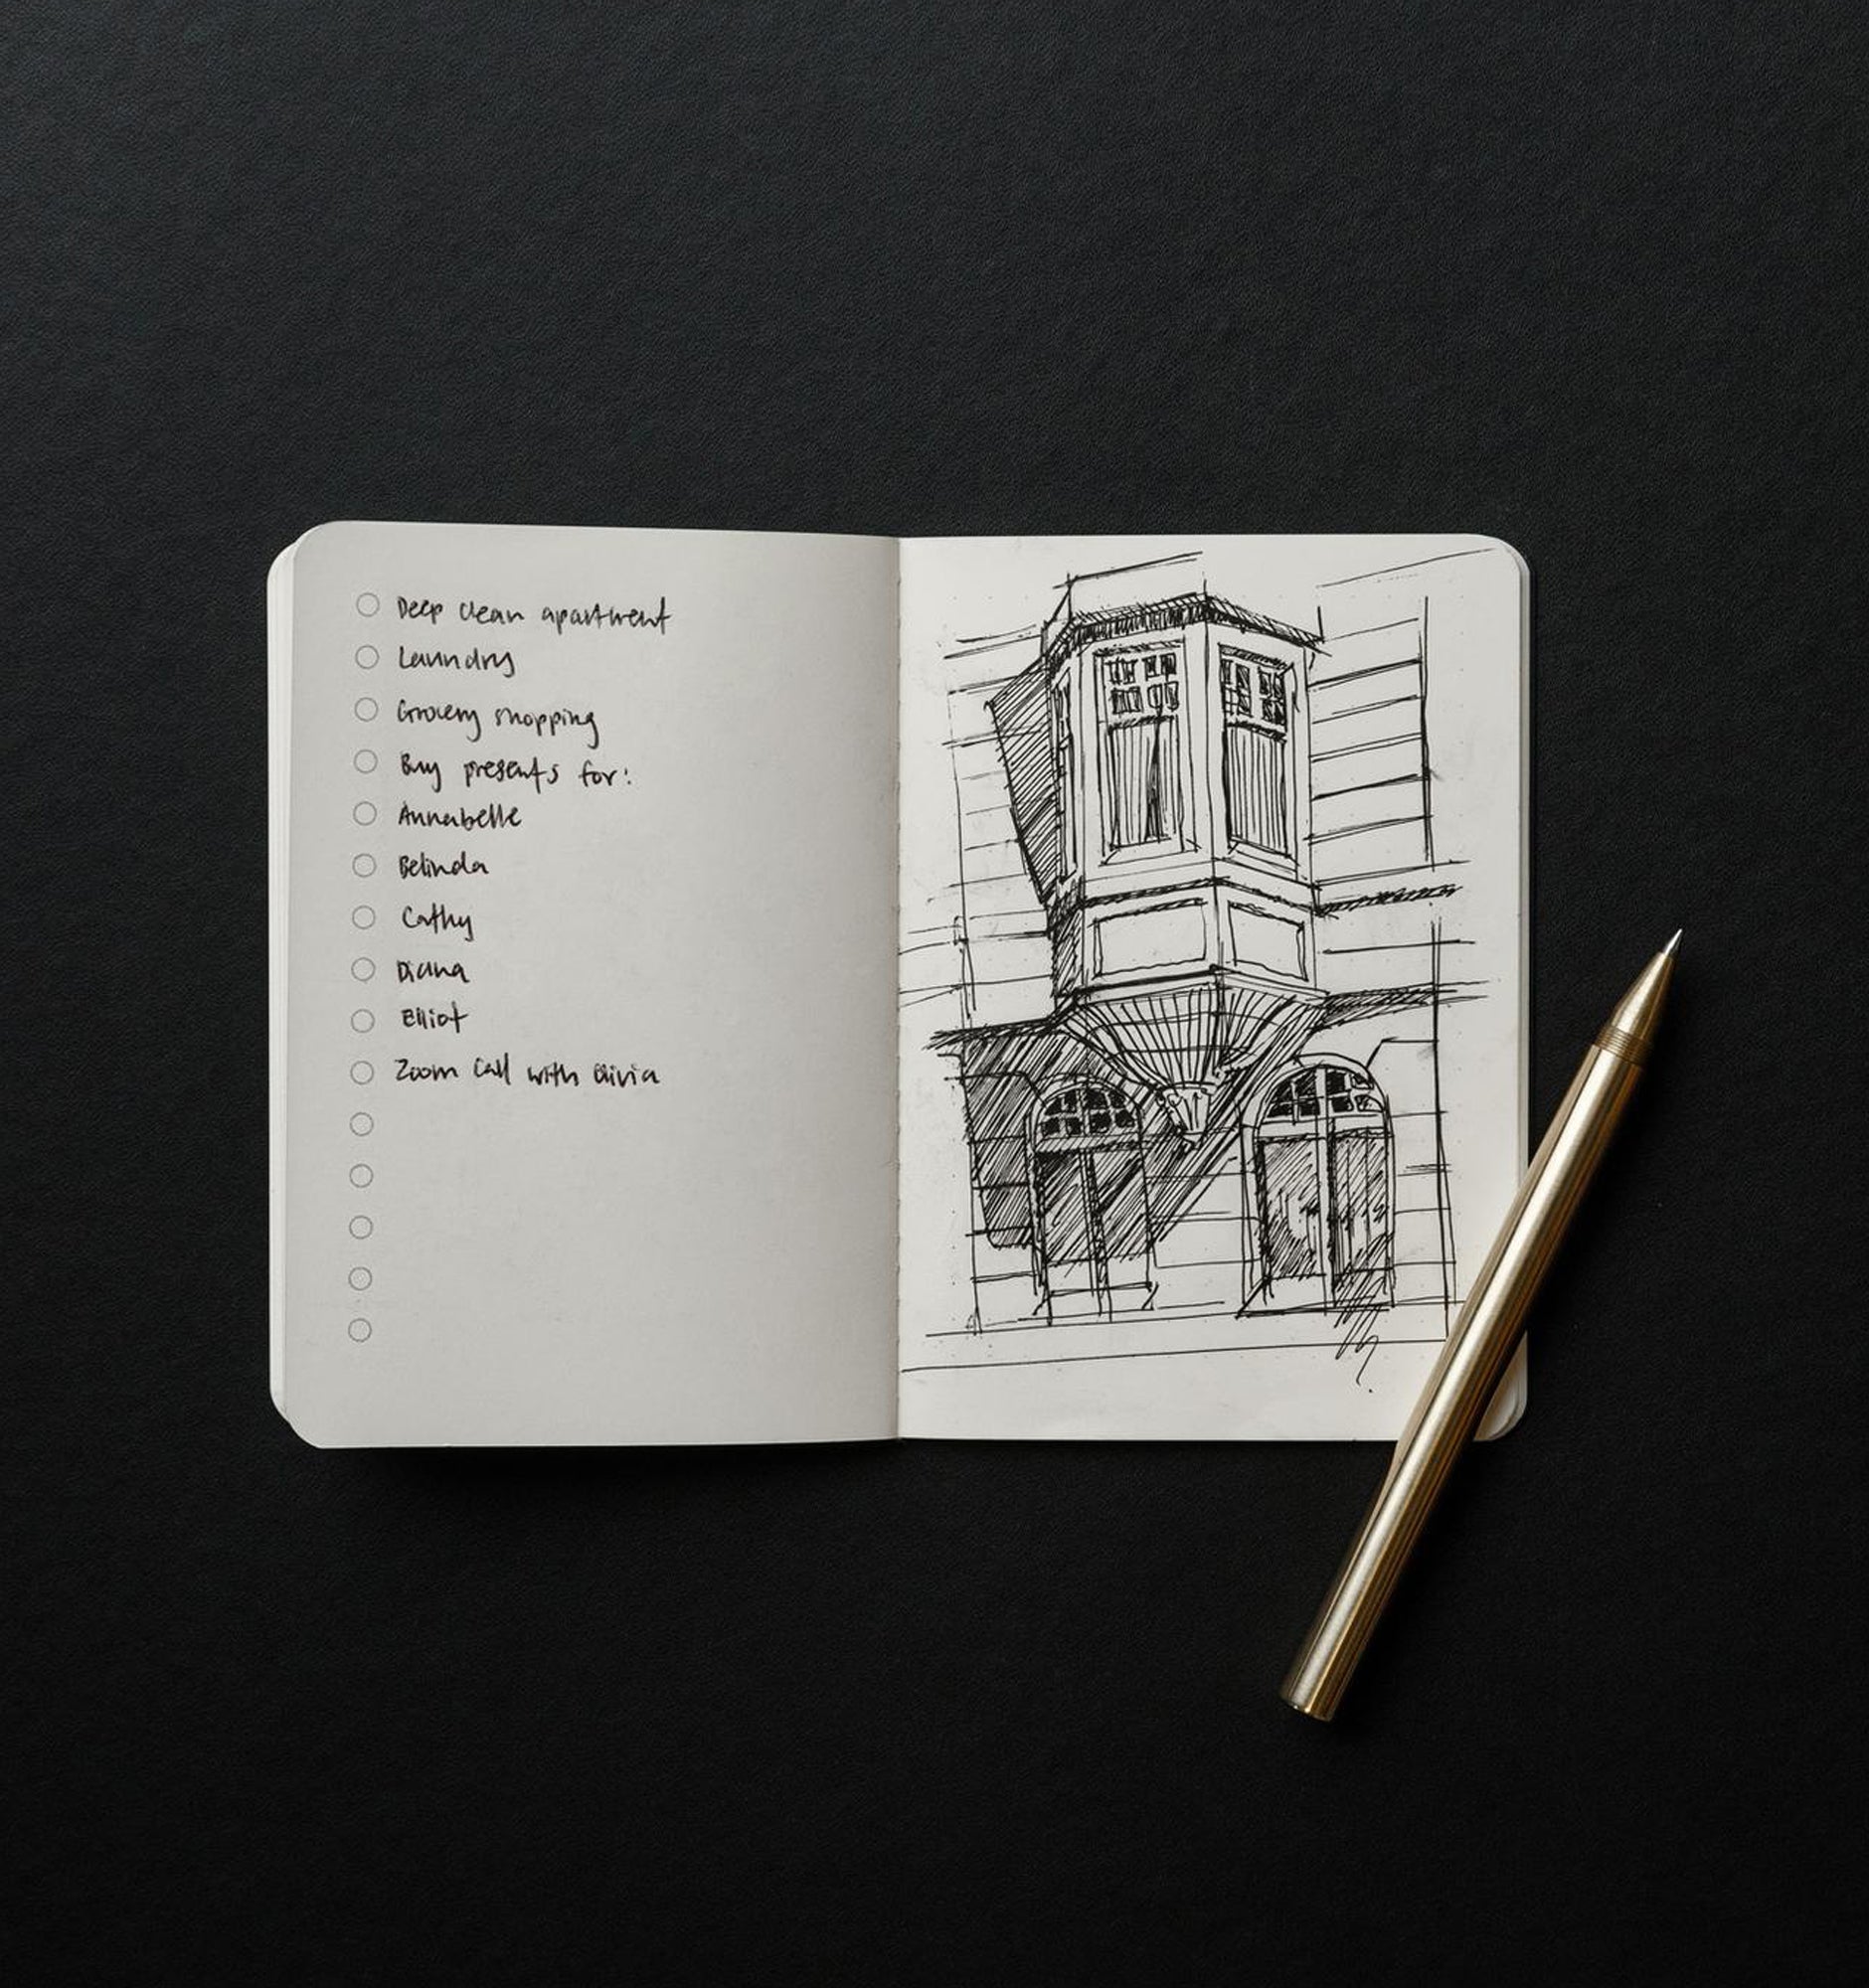 Deep clean apartment
Laundry
Grocery shopping
Buy presents for:
Annabelle
Belinda
Cathy
Diana
Elliot
Zoom Call with Olivia